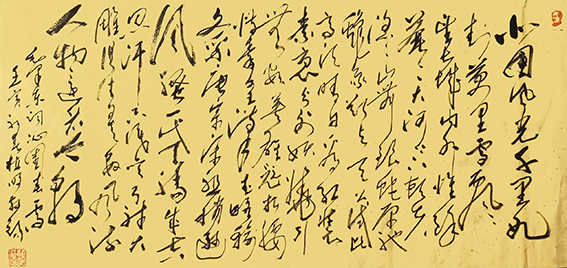 北国风光千里冰
封万里雪飘
望长城内外惟余
莽莽大河上下顿失
滔滔山舞银蛇原驰
蜡象欲与天公试比
高须晴日看红装
素裹分外妖娆引
无数英雄竞折腰
惜秦皇汉武略输
文采唐宗宋祖稍逊
风骚一代天骄成吉
思汗只识弯弓射大
雕俱往矣数风流
人物还看今朝
毛泽东词沁园春雪
壬寅初春